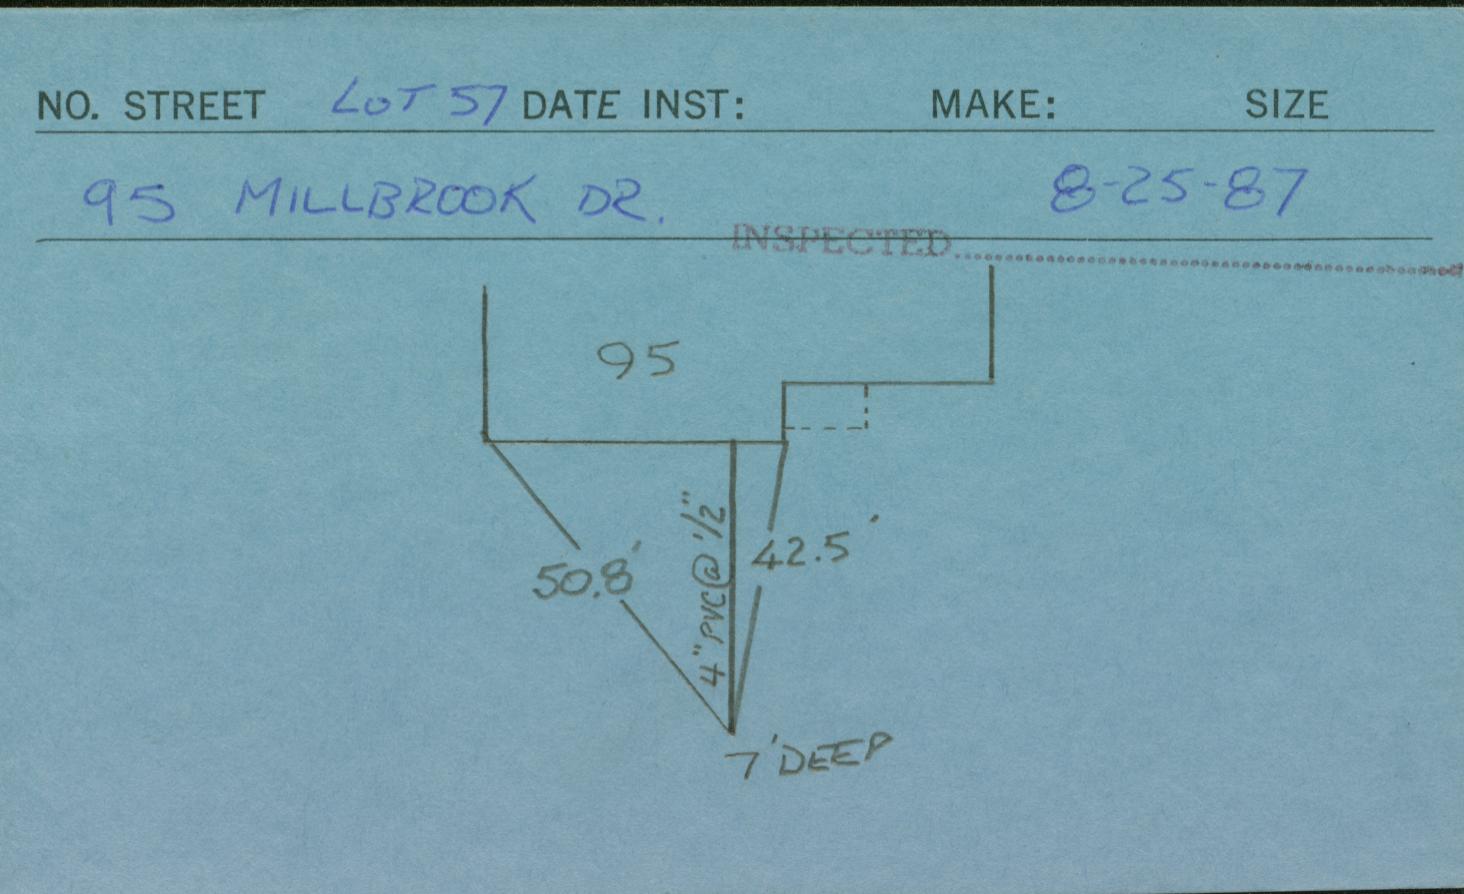 NO. STREET LOT 57 DATE INST: MAKE: SIZE
95 MILLBROOK DR. 8-25-87
INSPECTED
95
50.8'
4" PVC @ 1/2"
42.5'
7' DEEP